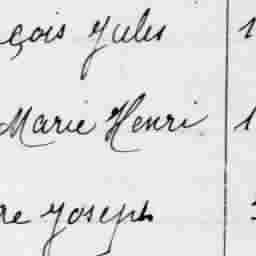 çois Jules 1
Marie Henri 1
re Joseph